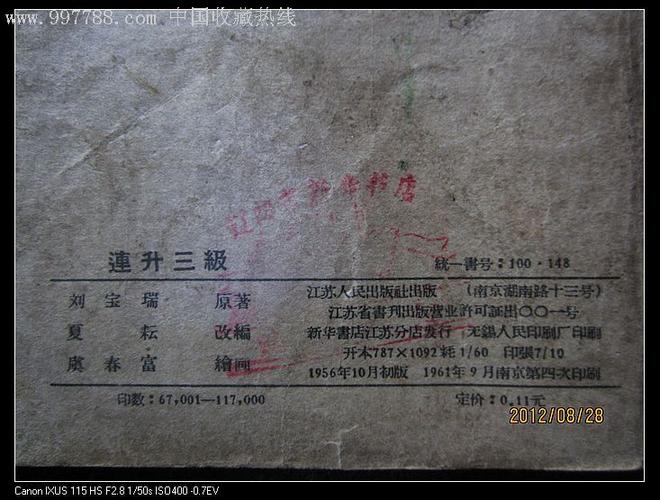 www.997788.com 中国收藏热线
連升三級
統一書号:100·148
刘宝瑞 原著
夏耘 改編
虞春富 繪画
江苏人民出版社出版 (南京湖南路十三号)
江苏省書刊出版营业許可証出〇〇一号
新华書店江苏分店发行 无錫人民印刷厂印刷
开本787×1092 粍 1/60 印張7/10
1956年10月初版 1961年9月南京第四次印刷
印数:67,001—117,000
定价:0.11元
2012/08/28
Canon IXUS 115 HS F2.8 1/50s ISO400 -0.7EV